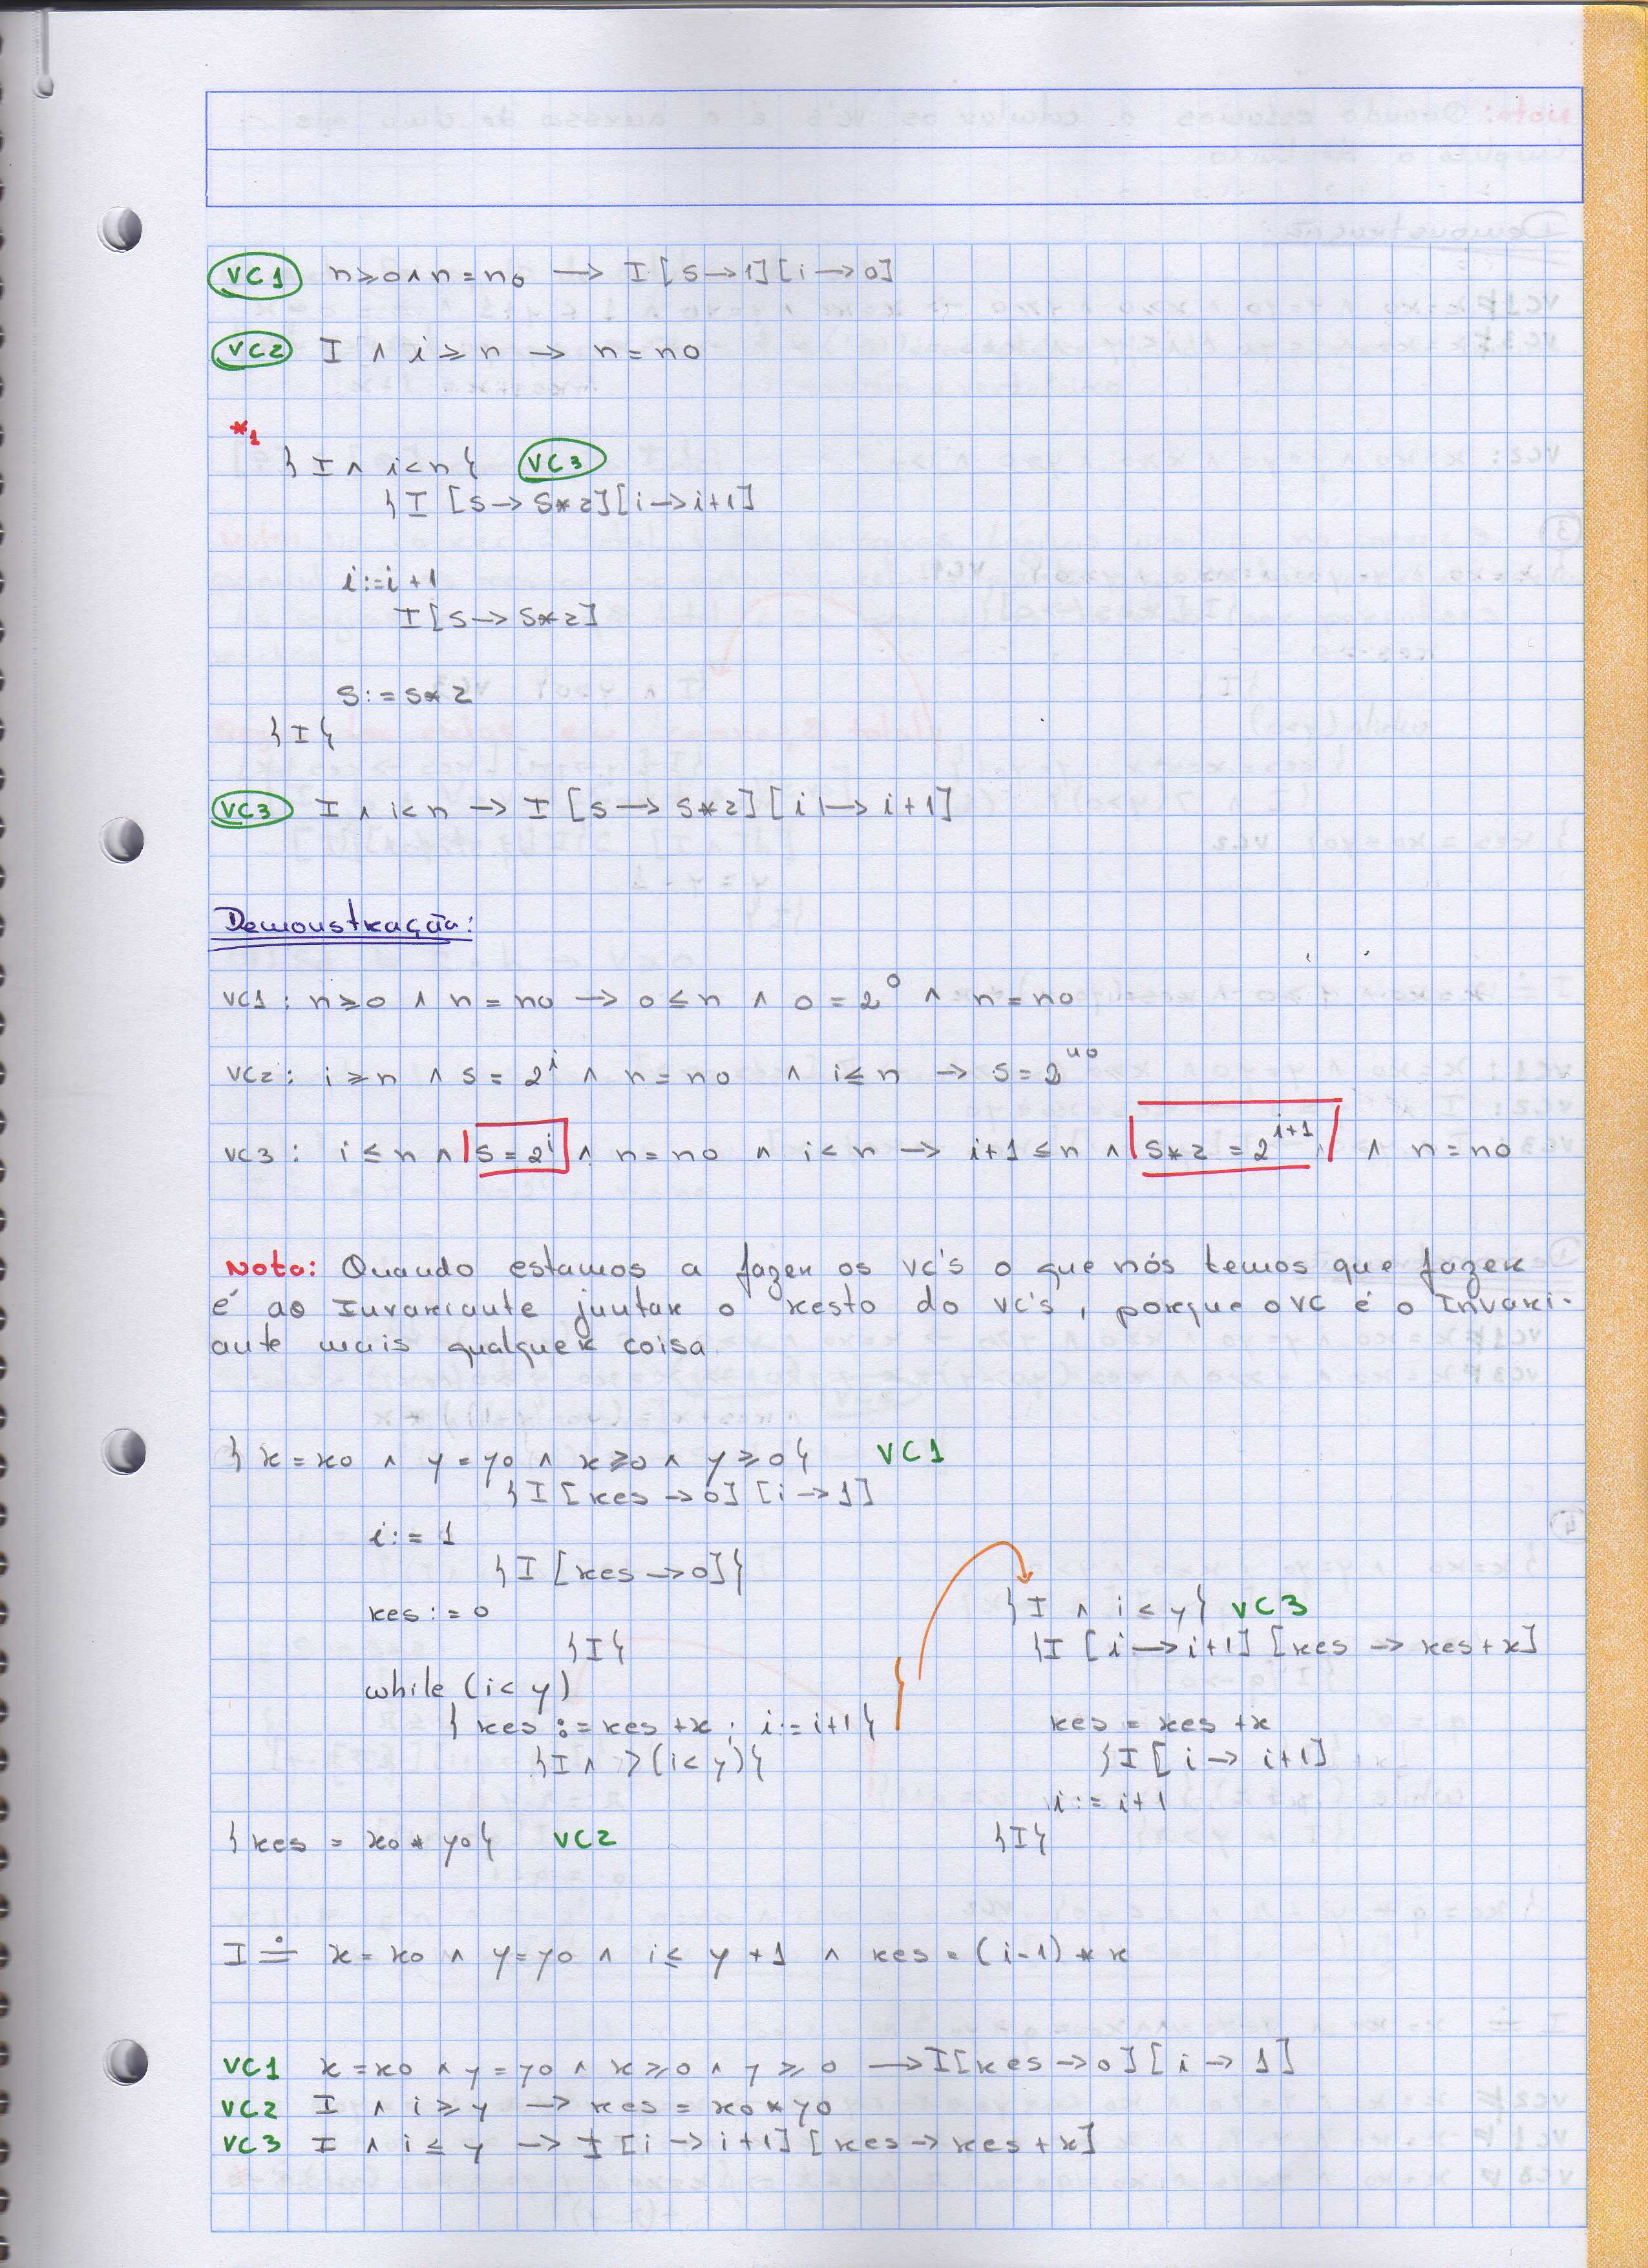 VC1 n≥0 ∧ n=n0 → I[s→1][i→0]
VC2 I ∧ i≥n → n=n0
*1
{I ∧ i<n} VC3
{I [s→s*2][i→i+1]
i:=i+1
I[s→s*2]
s:=s*2
{I}
VC3 I ∧ i<n → I[s→s*2][i→i+1]
Demonstração:
VC1: n≥0 ∧ n=n0 → 0≤n ∧ 0=2^0 ∧ n=n0
VC2: i≥n ∧ s=2^i ∧ n=n0 ∧ i≤n → s=2^n0
VC3: i≤n ∧ s=2^i ∧ n=n0 ∧ i<n → i+1≤n ∧ s*2=2^i+1 ∧ n=n0
Nota: Quando estamos a fazer os vc's o que nós temos que fazer
é ao Invariante juntar o resto do vc's, porque o VC é o Invari-
ante mais qualquer coisa.
{x=x0 ∧ y=y0 ∧ x≥0 ∧ y≥0} VC1
{I[res→0][i→1]
i:=1
{I[res→0]}
res:=0
{I}
while (i<y)
{res:=res+x; i:=i+1}
{I ∧ ¬(i<y)}
{res = x0*y0} VC2
{I ∧ i≤y} VC3
{I[i→i+1][res→res+x]
res = res+x
{I[i→i+1]
i:=i+1
{I}
I ≐ x=x0 ∧ y=y0 ∧ i≤y+1 ∧ res=(i-1)*x
VC1 x=x0 ∧ y=y0 ∧ x≥0 ∧ y≥0 → I[res→0][i→1]
VC2 I ∧ i≥y → res=x0*y0
VC3 I ∧ i≤y → I[i→i+1][res→res+x]